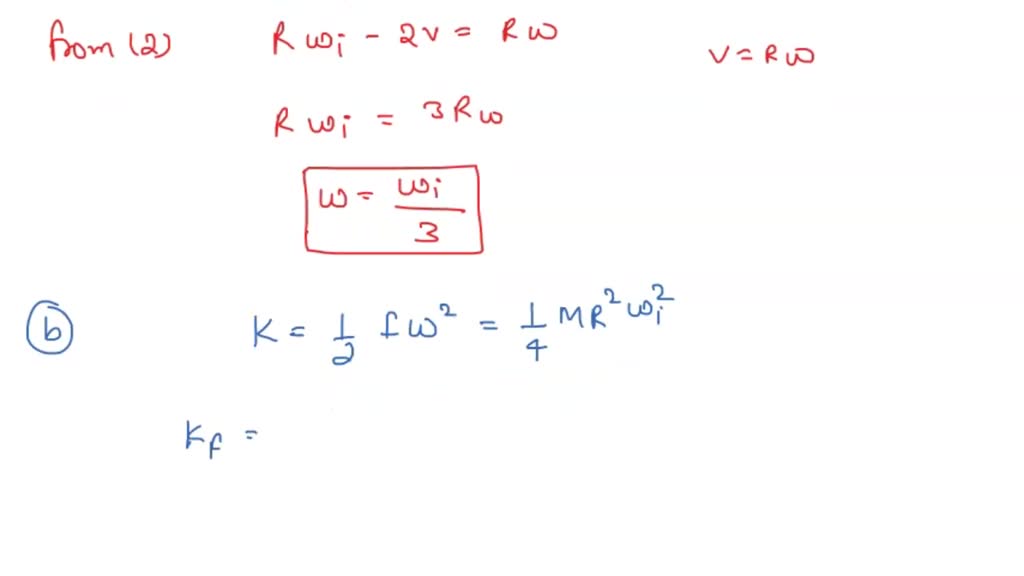 from (2) Rωi - 2v = Rω v = Rω
Rωi = 3Rω
ω = ωi/3
(b) K = 1/2 Iω² = 1/4 MR²ωi²
Kf =